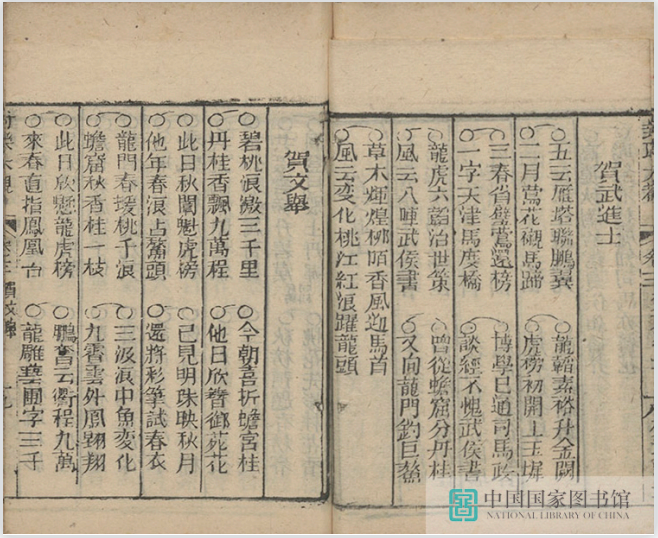 賀武進士
五云雁塔聯鵬翼
龍韜嘉裕升金闕
二月鶯花襯馬蹄
虎榜初開上玉墀
三春省鶯遷榜
博學已通司馬政
一字天津馬度橋
談經不愧武侯書
龍虎六韜治世策
曾從蟾窟分丹桂
風云八陣武侯書
又向龍門釣巨鰲
草木輝煌柳陌香風迎馬首
風云变化桃江紅浪躍龍頭
賀文舉
碧桃浪三千里
今朝喜折蟾宮桂
丹桂香飄九萬程
他日欣簪御苑花
此日秋闈魁虎榜
已見明珠映秋月
他年春浪占鰲頭
還將彩筆試春衣
龍門春援桃千浪
三汲浪中魚变化
蟾窟秋香桂一枝
九霄雲外鳳翱翔
此日欣懸龍虎榜
鵬奮云衢程九萬
來春直指鳳凰台
龍雕藝圃字三千
中国国家图书馆
NATIONAL LIBRARY OF CHINA